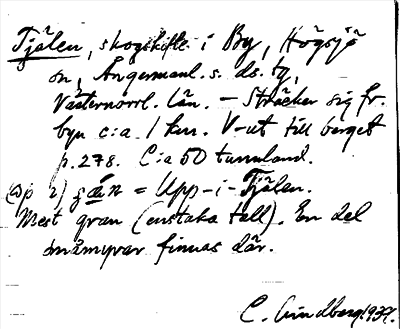 Tjälen, skogskifte i By, Högsjö
sn, Ångermanl. s. ds. tg,
Västernorrl. län. – Sträcker sig fr.
byn c:a 1 km. V-ut till berget
p. 278. C:a 50 tunnland.
= Upp-i-Tjälen.
Mest gran (enstaka tall). En del
småmyrar finnas där.
C. Lindberg 1937.